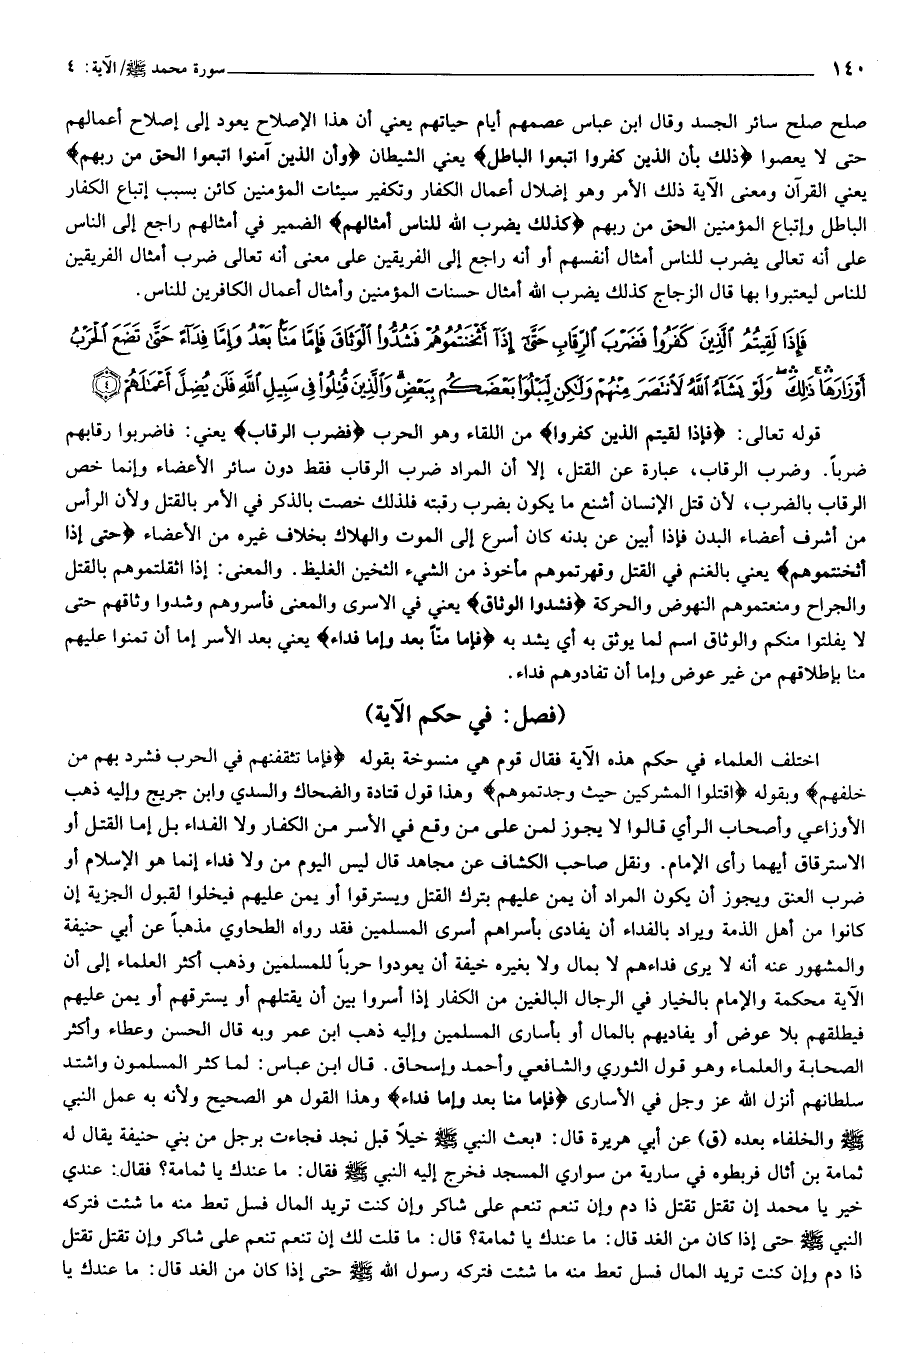 ١٤٠ سورة محمد ﷺ/ الآية: ٤
صلح صلح سائر الجسد وقال ابن عباس عصمهم أيام حياتهم يعني أن هذا الإصلاح يعود إلى إصلاح أعمالهم
حتى لا يعصوا ﴿ذلك بأن الذين كفروا اتبعوا الباطل﴾ يعني الشيطان ﴿وأن الذين آمنوا اتبعوا الحق من ربهم﴾
يعني القرآن ومعنى الآية ذلك الأمر وهو إضلال أعمال الكفار وتكفير سيئات المؤمنين كائن بسبب إتباع الكفار
الباطل وإتباع المؤمنين الحق من ربهم ﴿كذلك يضرب الله للناس أمثالهم﴾ الضمير في أمثالهم راجع إلى الناس
على أنه تعالى يضرب للناس أمثال أنفسهم أو أنه راجع إلى الفريقين على معنى أنه تعالى ضرب أمثال الفريقين
للناس ليعتبروا بها قال الزجاج كذلك يضرب الله أمثال حسنات المؤمنين وأمثال أعمال الكافرين للناس.
فَإِذَا لَقِيتُمُ ٱلَّذِينَ كَفَرُوا۟ فَضَرْبَ ٱلرِّقَابِ حَتَّىٰٓ إِذَآ أَثْخَنتُمُوهُمْ فَشُدُّوا۟ ٱلْوَثَاقَ فَإِمَّا مَنًّۢا بَعْدُ وَإِمَّا فِدَآءً حَتَّىٰ تَضَعَ ٱلْحَرْبُ
أَوْزَارَهَا ۚ ذَٰلِكَ ۖ وَلَوْ يَشَآءُ ٱللَّهُ لَٱنتَصَرَ مِنْهُمْ وَلَٰكِن لِّيَبْلُوَا۟ بَعْضَكُم بِبَعْضٍ ۗ وَٱلَّذِينَ قُتِلُوا۟ فِى سَبِيلِ ٱللَّهِ فَلَن يُضِلَّ أَعْمَٰلَهُمْ ﴿٤﴾
قوله تعالى: ﴿فإذا لقيتم الذين كفروا﴾ من اللقاء وهو الحرب ﴿فضرب الرقاب﴾ يعني: فاضربوا رقابهم
ضرباً. وضرب الرقاب، عبارة عن القتل، إلا أن المراد ضرب الرقاب فقط دون سائر الأعضاء وإنما خص
الرقاب بالضرب، لأن قتل الإنسان أشنع ما يكون بضرب رقبته فلذلك خصت بالذكر في الأمر بالقتل ولأن الرأس
من أشرف أعضاء البدن فإذا أبين عن بدنه كان أسرع إلى الموت والهلاك بخلاف غيره من الأعضاء ﴿حتى إذا
أثخنتموهم﴾ يعني بالغنم في القتل وقهرتموهم مأخوذ من الشيء الثخين الغليظ. والمعنى: إذا اثقلتموهم بالقتل
والجراح ومنعتموهم النهوض والحركة ﴿فشدوا الوثاق﴾ يعني في الاسرى والمعنى فأسروهم وشدوا وثاقهم حتى
لا يفلتوا منكم والوثاق اسم لما يوثق به أي يشد به ﴿فإما منّاً بعد وإما فداء﴾ يعني بعد الأسر إما أن تمنوا عليهم
منا بإطلاقهم من غير عوض وإما أن تفادوهم فداء.
(فصل: في حكم الآية)
اختلف العلماء في حكم هذه الآية فقال قوم هي منسوخة بقوله ﴿فإما تثقفنهم في الحرب فشرد بهم من
خلفهم﴾ وبقوله ﴿اقتلوا المشركين حيث وجدتموهم﴾ وهذا قول قتادة والضحاك والسدي وابن جريج وإليه ذهب
الأوزاعي وأصحاب الرأي قالوا لا يجوز لمن على من وقع في الأسر من الكفار ولا الفداء بل إما القتل أو
الاسترقاق أيهما رأى الإمام. ونقل صاحب الكشاف عن مجاهد قال ليس اليوم من ولا فداء إنما هو الإسلام أو
ضرب العنق ويجوز أن يكون المراد أن يمن عليهم بترك القتل ويسترقوا أو يمن عليهم فيخلوا لقبول الجزية إن
كانوا من أهل الذمة ويراد بالفداء أن يفادى بأسراهم أسرى المسلمين فقد رواه الطحاوي مذهباً عن أبي حنيفة
والمشهور عنه أنه لا يرى فداءهم لا بمال ولا بغيره خيفة أن يعودوا حرباً للمسلمين وذهب أكثر العلماء إلى أن
الآية محكمة والإمام بالخيار في الرجال البالغين من الكفار إذا أسروا بين أن يقتلهم أو يسترقهم أو يمن عليهم
فيطلقهم بلا عوض أو يفاديهم بالمال أو بأسارى المسلمين وإليه ذهب ابن عمر وبه قال الحسن وعطاء وأكثر
الصحابة والعلماء وهو قول الثوري والشافعي وأحمد وإسحاق. قال ابن عباس: لما كثر المسلمون واشتد
سلطانهم أنزل الله عز وجل في الأسارى ﴿فإما منا بعد وإما فداء﴾ وهذا القول هو الصحيح ولأنه به عمل النبي
ﷺ والخلفاء بعده (ق) عن أبي هريرة قال: «بعث النبي ﷺ خيلاً قبل نجد فجاءت برجل من بني حنيفة يقال له
ثمامة بن أثال فربطوه في سارية من سواري المسجد فخرج إليه النبي ﷺ فقال: ما عندك يا ثمامة؟ فقال: عندي
خير يا محمد إن تقتل تقتل ذا دم وإن تنعم تنعم على شاكر وإن كنت تريد المال فسل تعط منه ما شئت فتركه
النبي ﷺ حتى إذا كان من الغد قال: ما عندك يا ثمامة؟ قال: ما قلت لك إن تنعم تنعم على شاكر وإن تقتل تقتل
ذا دم وإن كنت تريد المال فسل تعط منه ما شئت فتركه رسول الله ﷺ حتى إذا كان من الغد قال: ما عندك يا